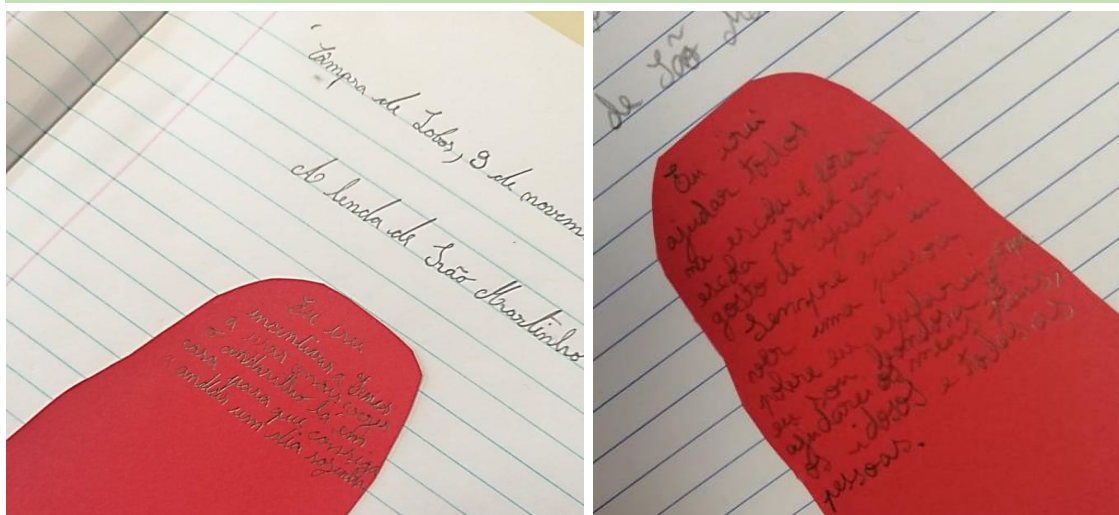 Câmara de Lobos, 9 de novem
A lenda de São Martinho
Eu irei
incentivar a
a usar mais vezes
o andarilho lá em
casa para que consiga
andar um dia sozinha
de São
Eu irei
ajudar todos
na escola e fora da
escola porque eu
gosto de ajudar.
Sempre que eu
ver uma pessoa
pobre eu ajudarei porque
eu sou bondosa
ajudarei os meus
os idosos e todas as
pessoas.